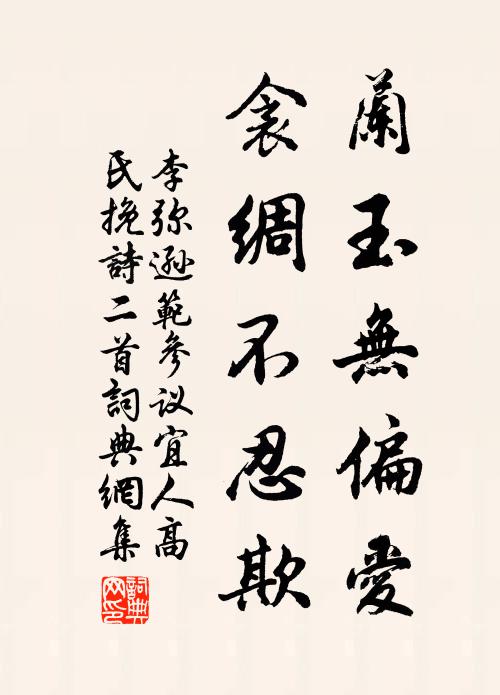 蘭玉無偏愛
衾綢不忍欺
李弥遜範參议宜人高
氏挽詩二首詞典網集
詞典网印